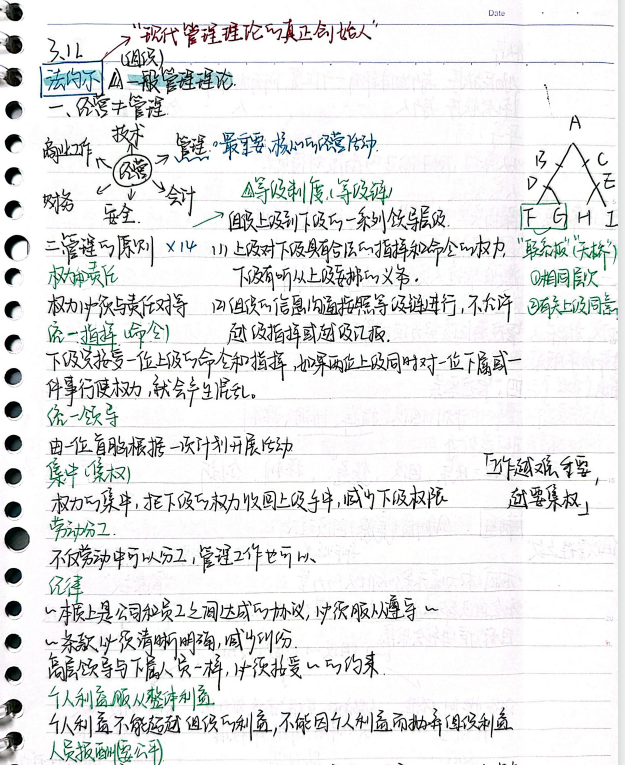 Date
"现代管理理论的真正创始人"
3.12 (组织)
法约尔 △一般管理理论
一、经营≠管理
技术
商业工作 经营 管理。最重要、核心的经营活动
财务 安全 会计
△等级制度(等级链)
组织上级到下级的一系列领导层级.
二管理的原则 ×14
(1) 上级对下级具有合法的指挥和命令的权力.
下级有听从上级安排的义务.
(2) 组织的信息沟通按照等级链进行, 不允许
越级指挥或越级汇报.
A
B C
D E
F G H I
"联系板"(天桥)
①相同层次
②有关上级同意
权力和责任
权力必须与责任对等
统一指挥(命令)
下级只接受一位上级的命令和指挥, 如果两位上级同时对一位下属或一
件事行使权力, 就会产生混乱。
统一领导
由一位首脑根据一项计划开展活动
集中(集权)
权力的集中, 把下级的权力收回上级手中, 减少下级权限
「工作越难重要,
越要集权」
劳动分工
不仅劳动中可以分工, 管理工作也可以.
纪律
~本质上是公司和员工之间达成的协议, 必须服从遵守~
~条款必须清晰明确, 减少纠纷.
高层领导与下属人员一样, 必须接受~的约束.
个人利益服从整体利益
个人利益不能超越组织的利益, 不能因个人利益而抛弃组织利益
人员报酬(要公平)